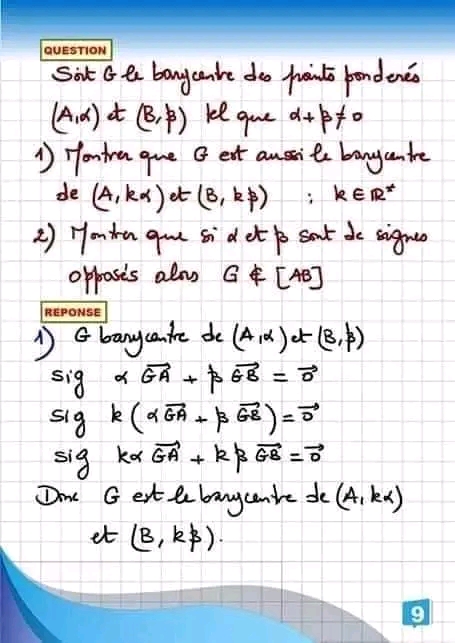 QUESTION
Soit G le barycentre des points pondérés
(A,α) et (B,β) tel que α+β≠0
1) Montrer que G est aussi le barycentre
de (A, kα) et (B, kβ) ; k∈ℝ*
2) Montrer que si α et β sont de signes
opposés alors G ∉ [AB]
REPONSE
1) G barycentre de (A,α) et (B,β)
sig α GA⃗ + β GB⃗ = 0⃗
sig k (α GA⃗ + β GB⃗) = 0⃗
sig kα GA⃗ + kβ GB⃗ = 0⃗
Donc G est le barycentre de (A, kα)
et (B, kβ).
9